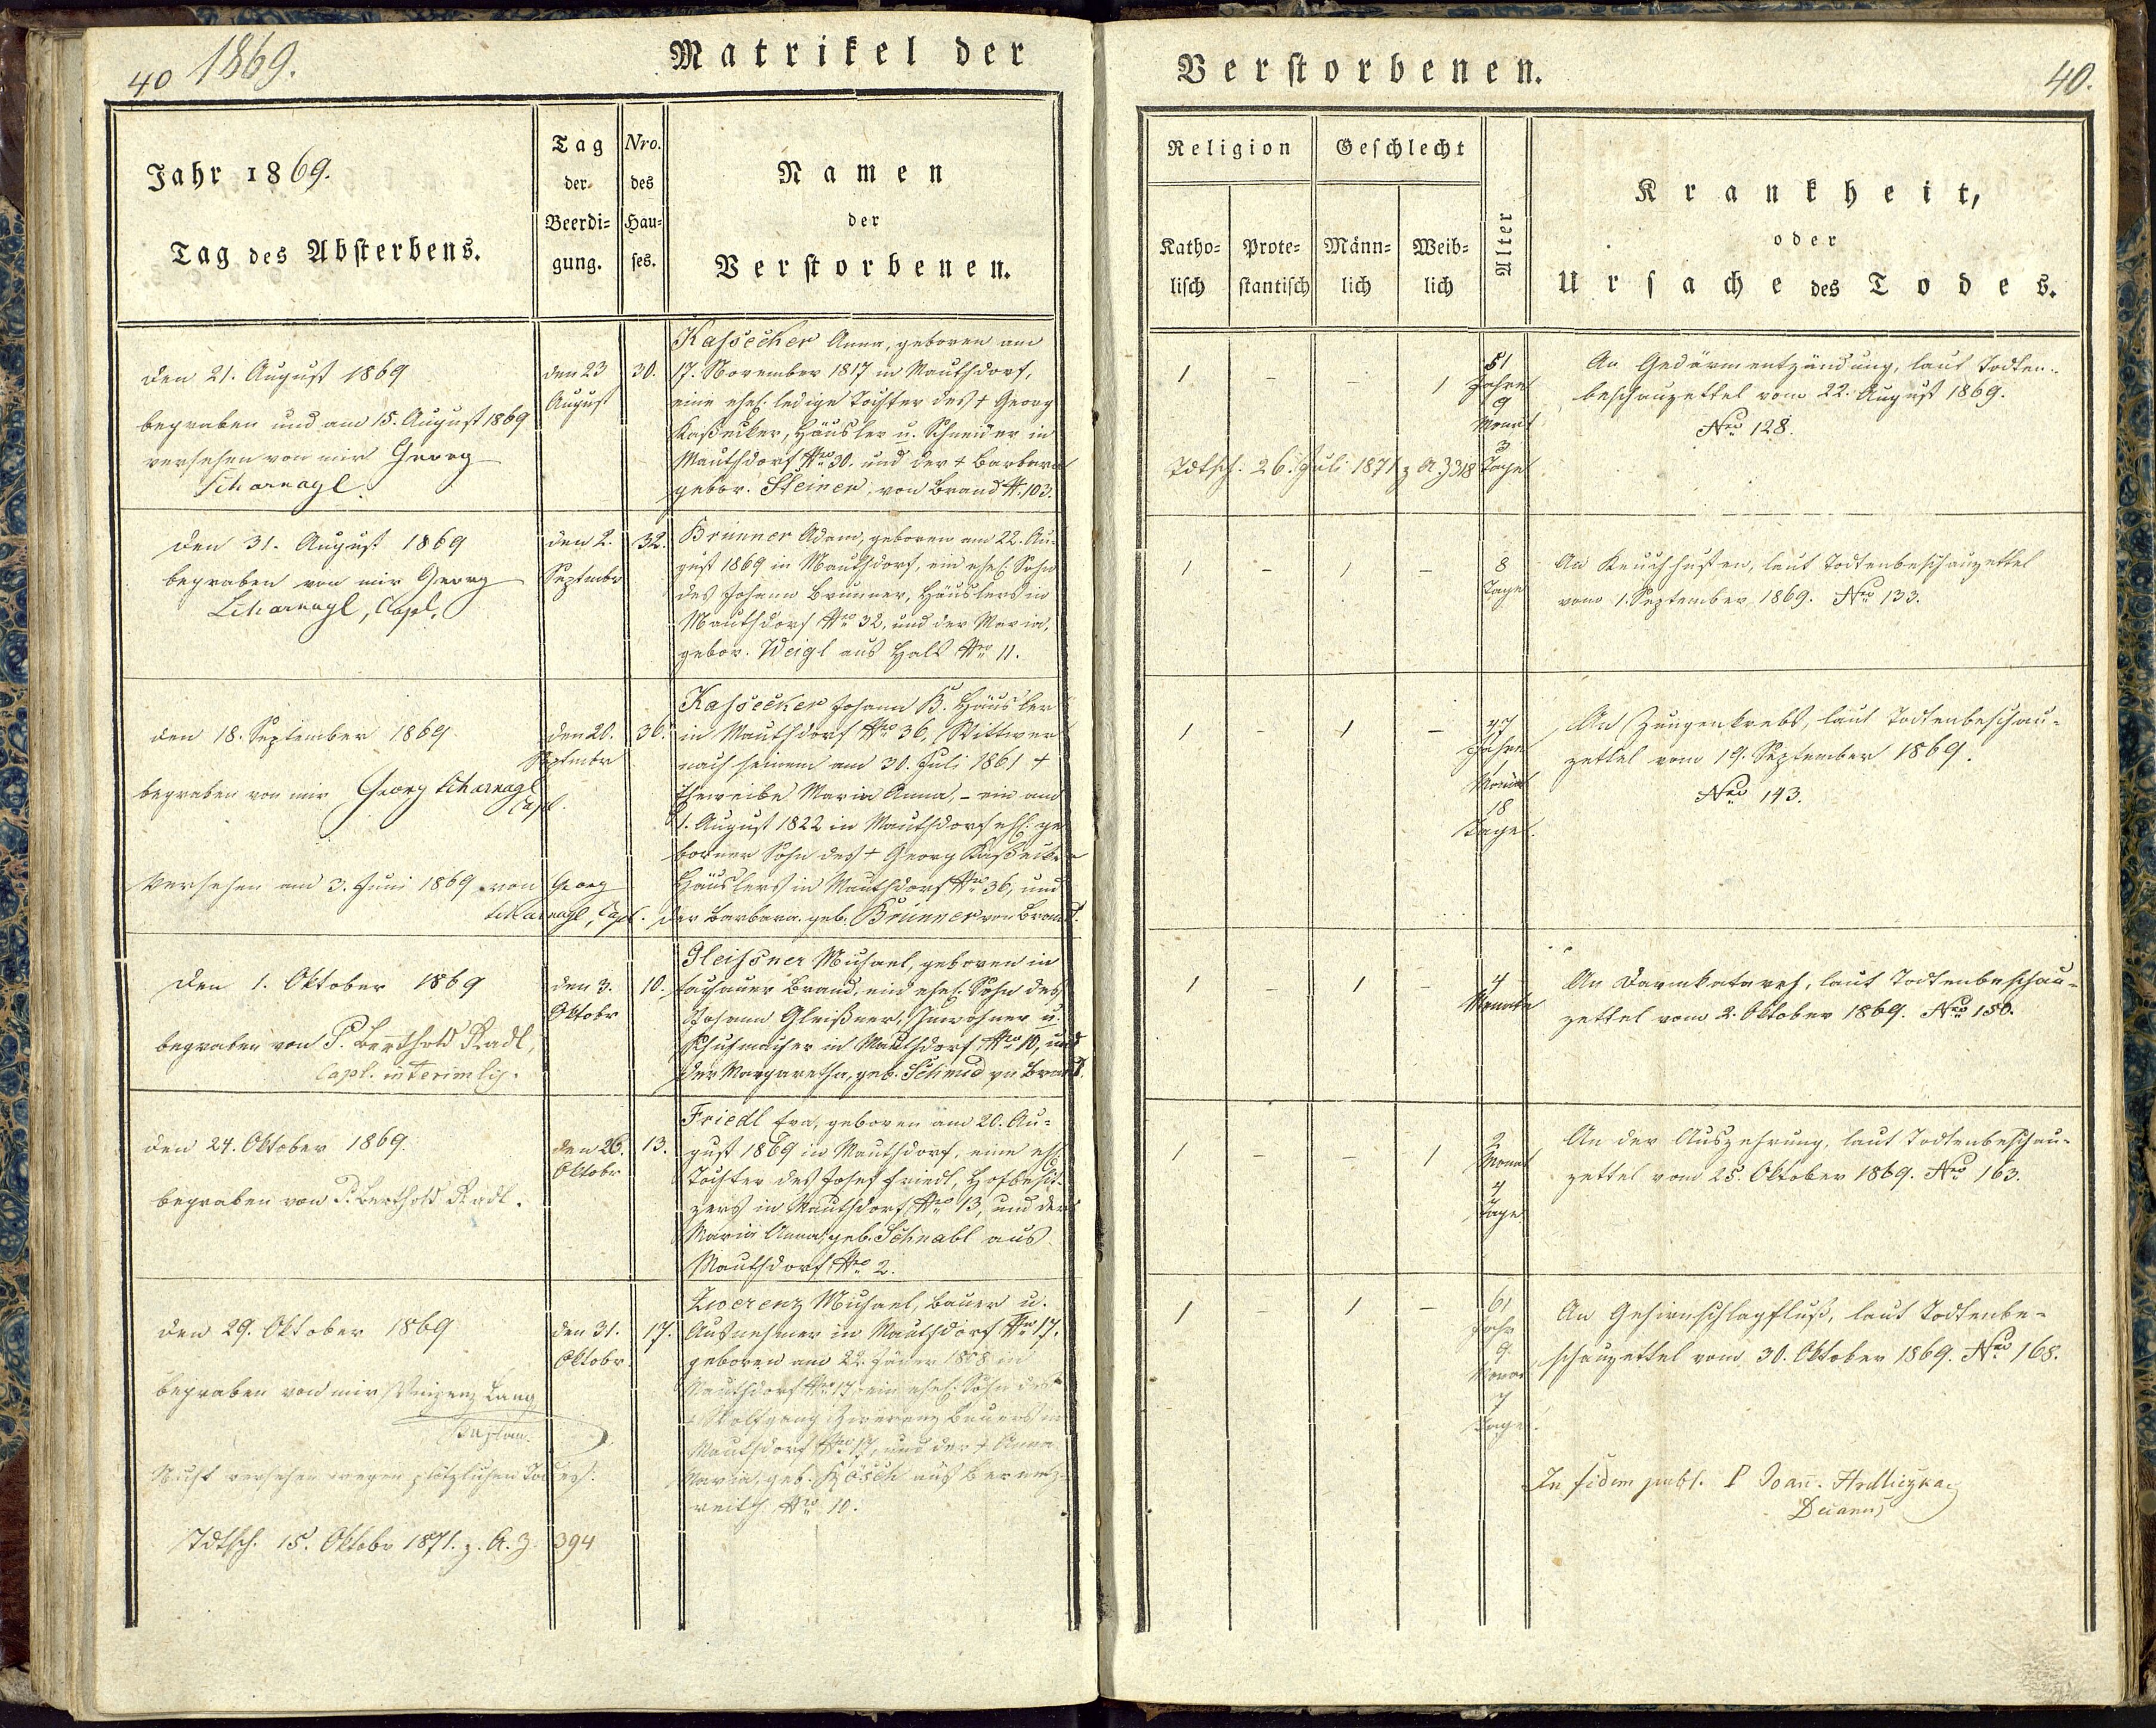 40 1869.
Matrikel der
Verstorbenen.
40.
Jahr 1869.
Tag des Absterbens.
Tag
der
Beerdi=
gung.
Nro.
des
Hau=
ses.
Namen
der
Verstorbenen.
Religion
Geschlecht
Katho=
lisch
Prote=
stantisch
Männ=
lich
Weib=
lich
Alter
Krankheit,
oder
Ursache des Todes.
den 21. August 1869
begraben und am 15. August 1869
versehen von mir Georg
Scharnagl.
den 23
August
30.
Kassecker Anna, geboren am
17. November 1817 in Mauthdorf,
eine ehel. ledige Tochter des † Georg
Kaßecker, Häusler u. Schneider in
Mauthdorf Nro 30. und der † Barbara
gebor. Steiner, von Brand N. 103.
1 - - 1
51
Jahre
9
Monat
3
Tage
An Gedärmentzündung, laut Todten=
beschauzettel vom 22. August 1869.
Nro 128.
Tdtsch. 26. Juli 1871 z A Z 318
den 31. August 1869
begraben von mir Georg
Scharnagl, Capl.
den 2.
Septmbr
32.
Brunner Adam, geboren am 22. Au=
gust 1869 in Mauthdorf, ein ehel. Sohn
des Johann Brunner, Häuslers in
Mauthdorf Nro 32, und der Maria,
gebor. Weigl aus Hals Nro 11.
1 - 1 -
8
Tage
An Keuchhusten, laut Todtenbeschauzettel
vom 1. September 1869. Nro 133.
den 18. September 1869.
begraben von mir Georg Scharnagl
Capl.
Versehen am 3. Juni 1869 von Georg
Scharnagl, Capl.
den 20.
Septmbr
36.
Kassecker Johann B. Häusler
in Mauthdorf Nro 36, Wittwer
nach seinem am 30. Juli 1861 †
Eheweibe Maria Anna, - ein am
1. August 1822 in Mauthdorf ehl. ge
borner Sohn des † Georg Kaßecker
Häuslers in Mauthdorf Nro 36, und
der Barbara geb. Brunner von Brand.
1 - 1 -
47
Jahre
1
Monat
18
Tage.
An Zungenkrebs, laut Todtenbeschau=
zettel vom 19. September 1869.
Nro 143.
den 1. Oktober 1869
begraben von P. Berthold Radl,
Capl. interimlis.
den 3.
Oktobr
10.
Gleissner Michael, geboren in
Tachauer Brand, ein ehel. Sohn des
Johann Gleißner, Inwohner u.
Schuhmacher in Mauthdorf Nro 10, und
der Margaretha, geb. Schmid zu Brand.
1 - 1 -
4
Monate
An Darmkatarrh, laut Todtenbeschau=
zettel vom 2. Oktober 1869. Nro 150.
den 24. Oktober 1869.
begraben von P. Berthold Radl.
den 26.
Oktobr
13.
Friedl Eva, geboren am 20. Au=
gust 1869 in Mauthdorf, eine ehl.
Tochter des Josef Friedl, Hofbesit=
zers in Mauthdorf Nro 13, und der
Maria Anna, geb. Schnabl aus
Mauthdorf Nro 2.
1 - - 1
2
Monat
4
Tage
An der Auszehrung, laut Todtenbeschau=
zettel vom 25. Oktober 1869. Nro 163.
den 29. Oktober 1869
begraben von mir Vinzenz Lang
Kaplan.
Nicht versehen wegen plötzlichen Todes.
Tdtsch. 15. Oktobr 1871. z. A. Z. 394
den 31.
Oktobr.
17.
Zwerenz Michael, Bauer u.
Ausnehmer in Mauthdorf Nro 17.
geboren am 22. Jäner 1808 in
Mauthdorf Nro 17, ein ehel. Sohn des
† Wolfgang Zwerenz Bauers in
Mauthdorf Nro 17, und der † Anna
Maria, geb. Hösch aus Bernetz=
reith Nro 10.
1 - 1 -
61
Jahr
9
Monat
7
Tage.
An Gehirnschlagfluß, laut Todtenbe=
schauzettel vom 30. Oktober 1869. Nro 168.
In fidem publ. P Joan. Hrdliczka
Decanus